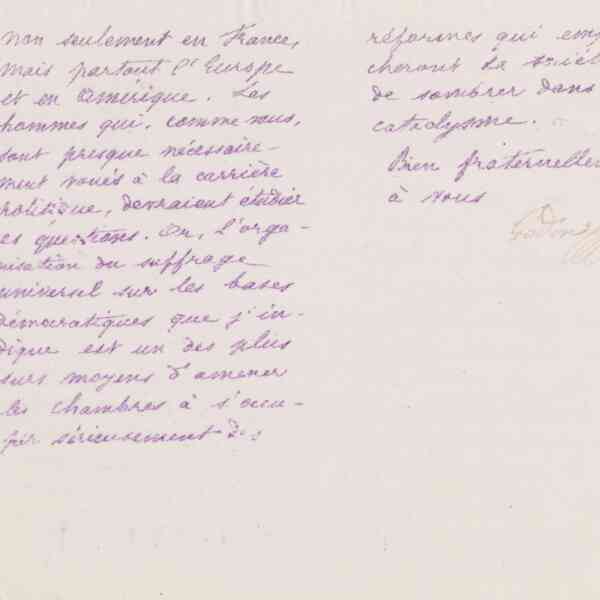 non seulement en France,
mais partout l'Europe
et en Amérique. Les
hommes qui, comme vous,
sont presque nécessaire-
ment voués à la carrière
politique, devraient étudier
ces questions. Or, l'orga-
nisation du suffrage
universel sur les bases
démocratiques que j'in-
dique est un des plus
surs moyens d'amener
les chambres à s'occu-
per sérieusement des
réformes qui emp
cheront la
de sombrer dans
cataclysme.
Bien fraternelle
à vous
Godin